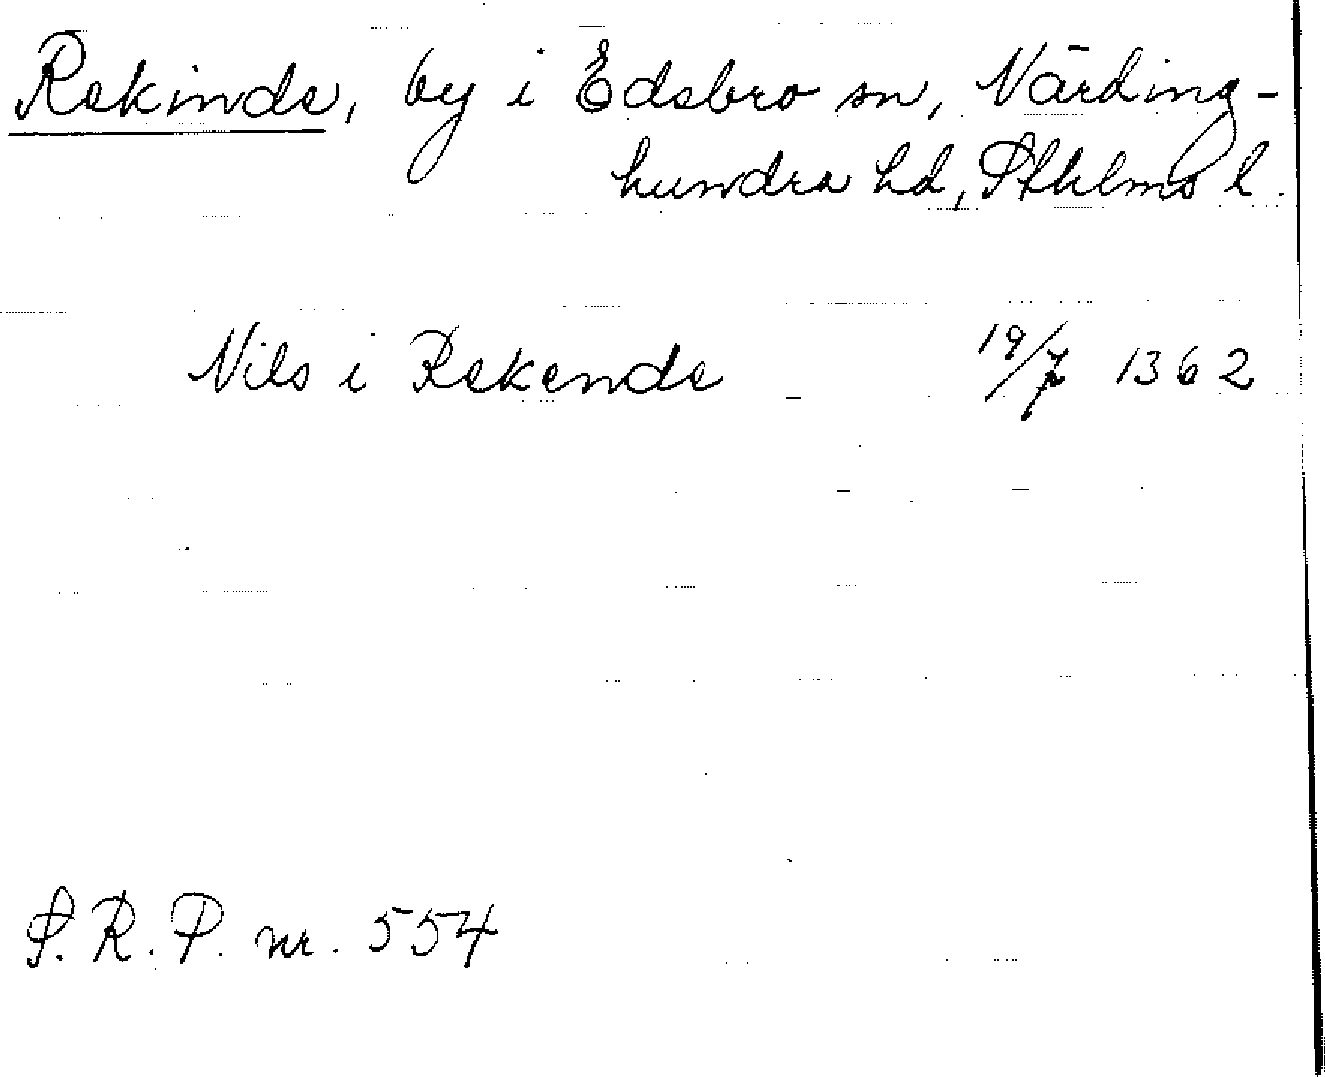 Rekinde, by i Edsbro sn, Närding-
hundra hd, Sthlms l.
Nils i Rekende 19/7 1362
S.R.P. nr. 554